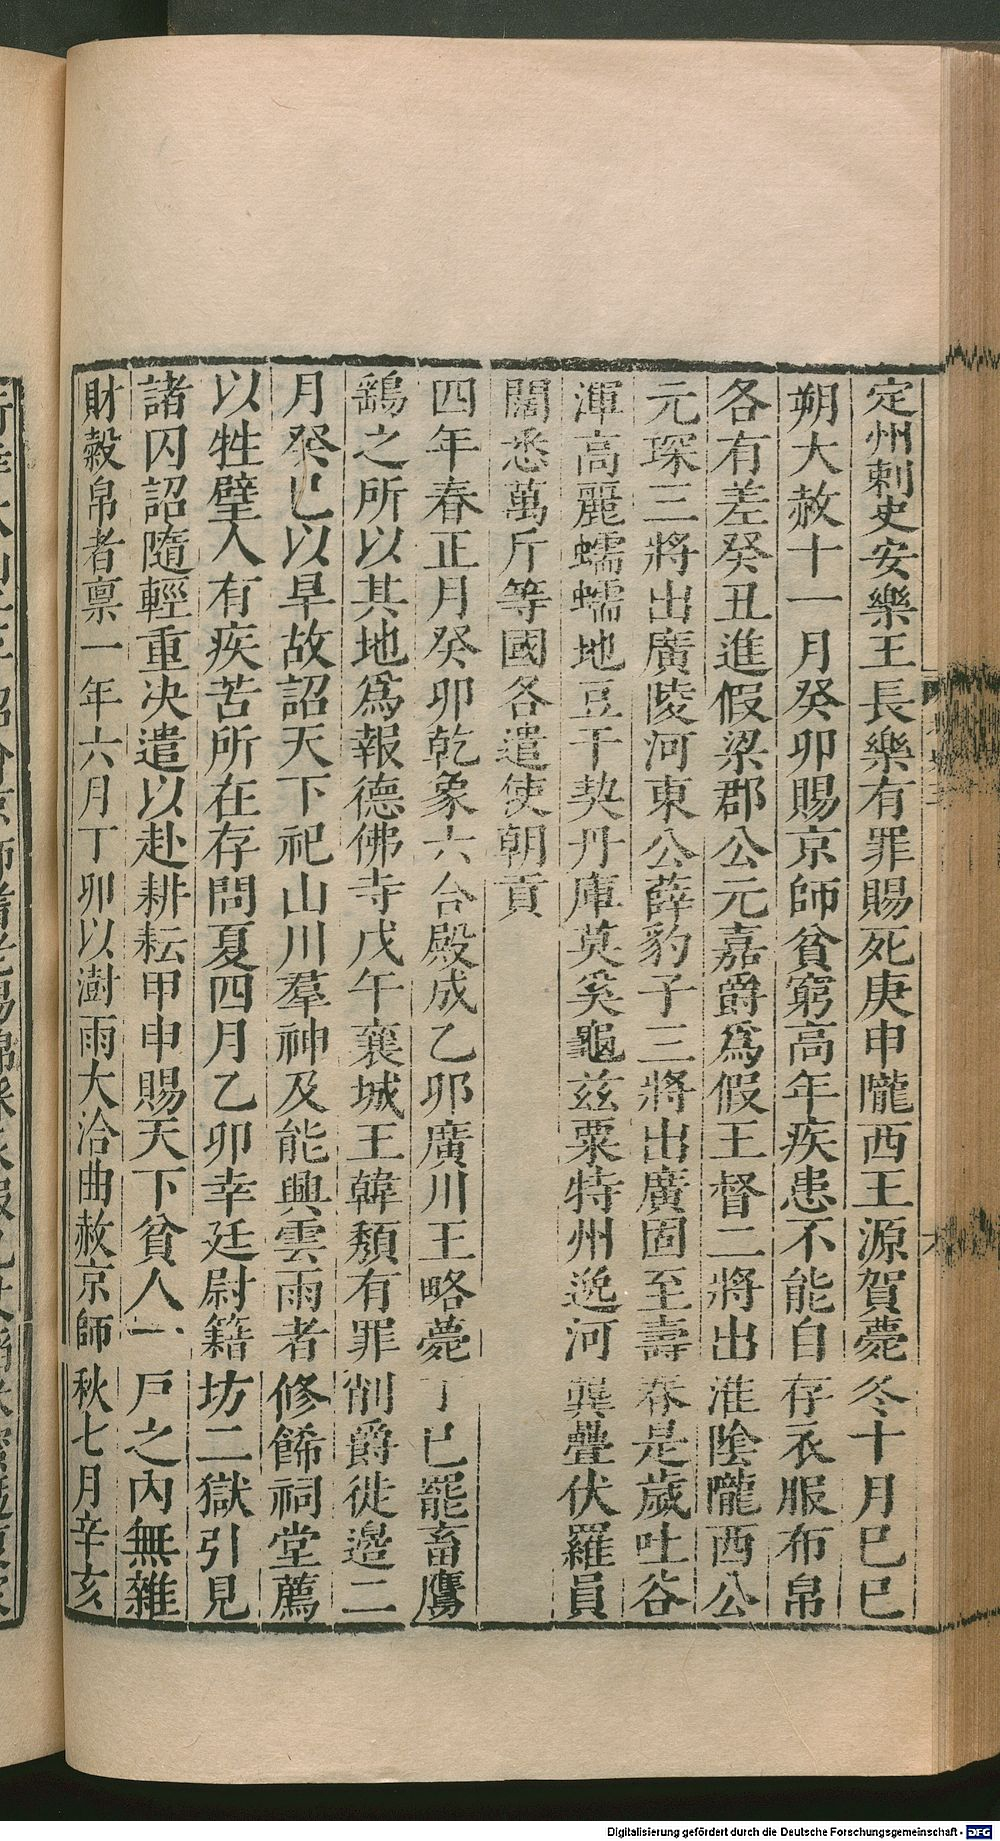 定州刺史安樂王長樂有罪賜死庚申隴西王源賀薨冬十月己巳
朔大赦十一月癸卯賜京師貧窮高年疾患不能自存衣服布帛
各有差癸丑進假梁郡公元嘉爵爲假王督二將出淮陰隴西公
元琛三將出廣陵河東公薛豹子三將出廣固至壽春是歲吐谷
渾高麗蠕蠕地豆干契丹庫莫奚龜茲粟特州逸河龔疊伏羅員
闊悉萬斤等國各遣使朝貢
四年春正月癸卯乾象六合殿成乙卯廣川王略薨丁巳罷畜鷹
鷂之所以其地爲報德佛寺戊午襄城王韓頽有罪削爵徙邉二
月癸巳以旱故詔天下祀山川羣神及能興雲雨者修餙祠堂薦
以牲璧人有疾苦所在存問夏四月乙卯幸廷尉籍坊二獄引見
諸囚詔隨輕重决遣以赴耕耘甲申賜天下貧人一戸之內無雜
財穀帛者禀一年六月丁卯以澍雨大洽曲赦京師秋七月辛亥
Digitalisierung gefördert durch die Deutsche Forschungsgemeinschaft - DFG